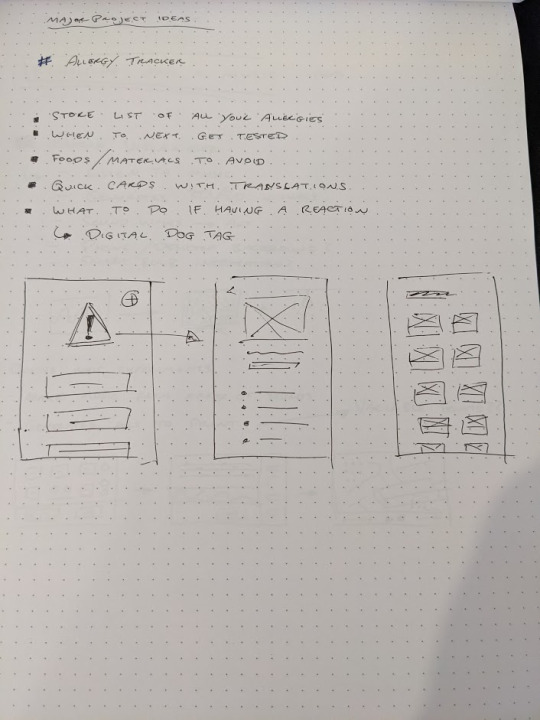 MAJOR PROJECT IDEAS.
# ALLERGY TRACKER
▪ STORE LIST OF ALL YOUR ALLERGIES
▪ WHEN TO NEXT GET TESTED
▪ FOODS/MATERIALS TO AVOID.
▪ QUICK CARDS WITH TRANSLATIONS.
▪ WHAT TO DO IF HAVING A REACTION
↳ DIGITAL DOG TAG
!